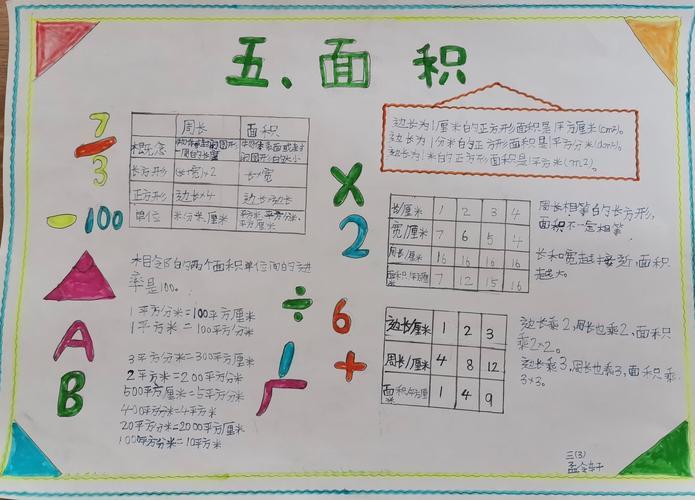 五、面积
7
3
-100
A
B
周长 面积
概念
长方形 (长+宽)×2 长×宽
正方形 边长×4 边长×边长
单位 米、分米、厘米 平方米、平方分米、平方厘米
相邻的两个面积单位间的进
率是100。
1平方分米=100平方厘米
1平方米=100平方分米
3平方分米=300平方厘米
2平方米=200平方分米
500平方厘米=5平方分米
400平方分米=4平方米
20平方分米=2000平方厘米
1000平方分米=10平方米
×
2
÷
6
+
边长为1厘米的正方形面积是1平方厘米(cm²)。
边长为1分米的正方形面积是1平方分米(dm²)。
边长为1米的正方形面积是1平方米(m²)。
长/厘米 1 2 3 4
宽/厘米 7 6 5 4
周长/厘米 16 16 16 16
面积/平方厘米 7 12 15 16
周长相等的长方形,
面积不一定相等。
长和宽越接近,面积
越大。
边长/厘米 1 2 3
周长/厘米 4 8 12
面积/平方厘米 1 4 9
边长乘2,周长也乘2,面积
乘2×2。
边长乘3,周长也乘3,面积乘
3×3。
三(3)